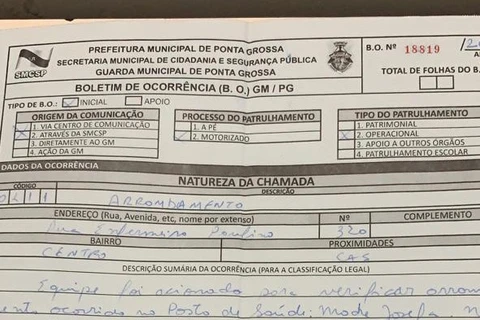 PREFEITURA MUNICIPAL DE PONTA GROSSA
SECRETARIA MUNICIPAL DE CIDADANIA E SEGURANÇA PÚBLICA
GUARDA MUNICIPAL DE PONTA GROSSA
SMCSP
B.O. Nº 18819
BOLETIM DE OCORRÊNCIA (B. O.) GM / PG
TOTAL DE FOLHAS DO B.
TIPO DE B.O.: INICIAL APOIO
ORIGEM DA COMUNICAÇÃO
1. VIA CENTRO DE COMUNICAÇÃO
2. ATRAVÉS DA SMCSP
3. DIRETAMENTE AO GM
4. AÇÃO DA GM
PROCESSO DO PATRULHAMENTO
1. A PÉ
2. MOTORIZADO
TIPO DO PATRULHAMENTO
1. PATRIMONIAL
2. OPERACIONAL
3. APOIO A OUTROS ÓRGÃOS
4. PATRULHAMENTO ESCOLAR
DADOS DA OCORRÊNCIA
NATUREZA DA CHAMADA
CÓDIGO DESCRIÇÃO
0211 ARROMBAMENTO
ENDEREÇO (Rua, Avenida, etc, nome por extenso) Nº COMPLEMENTO
Rua Enfermeiro Paulino 320
BAIRRO PROXIMIDADES
CENTRO CAS
DESCRIÇÃO SUMÁRIA DA OCORRÊNCIA (PARA A CLASSIFICAÇÃO LEGAL)
Equipe foi acionada para verificar arrom
mento ocorrido no Posto de Saúde: Made Josefa. N